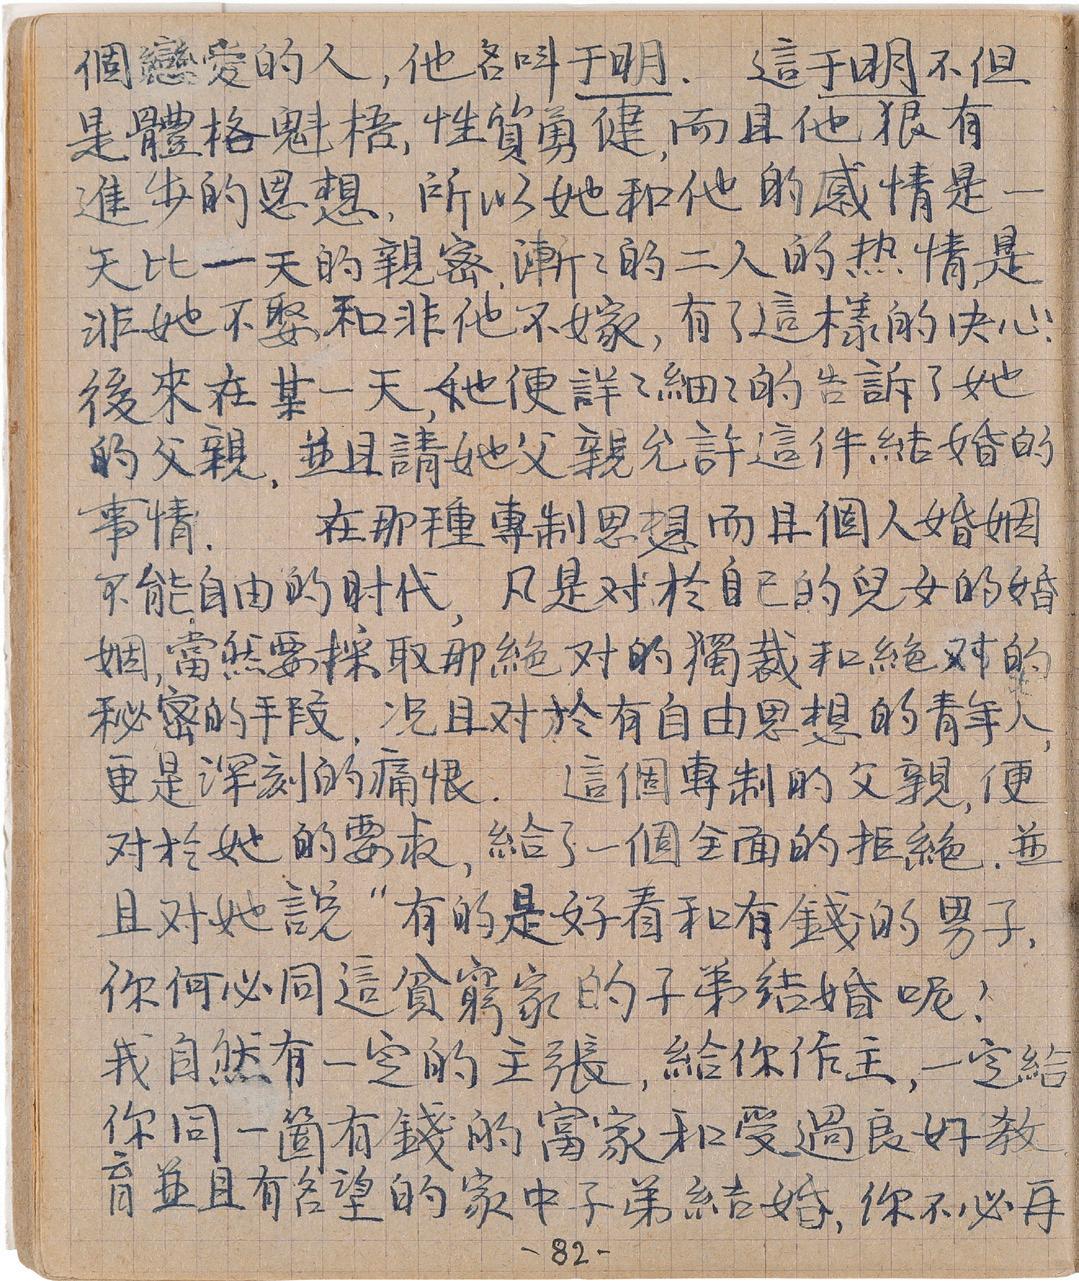 個戀愛的人,他名叫于明. 這于明不但
是體格魁梧,性質勇健,而且他狠有
進步的思想,所以她和他的感情是一
天比一天的親密.漸〻的二人的热情,是
非她不娶和非他不嫁,有了這樣的决心!
後來在某一天,她便詳〻細〻的告訴了她
的父親,並且請她父親允許這件結婚的
事情. 在那種專制思想而且個人婚姻
不能自由的时代,凡是对於自己的兒女的婚
姻,當然要採取那絕对的獨裁和絕对的
秘密的手段.况且对於有自由思想的青年人,
更是深刻的痛恨. 這個專制的父親,便
对於她的要求,給了一個全面的拒絕.並
且对她說“有的是好看和有錢的男子,
你何必同這貧窮家的子弟結婚呢?
我自然有一定的主張,給你作主,一定給
你同一箇有錢的富家和受過良好教
育並且有名望的家中子弟結婚,你不必再
-82-